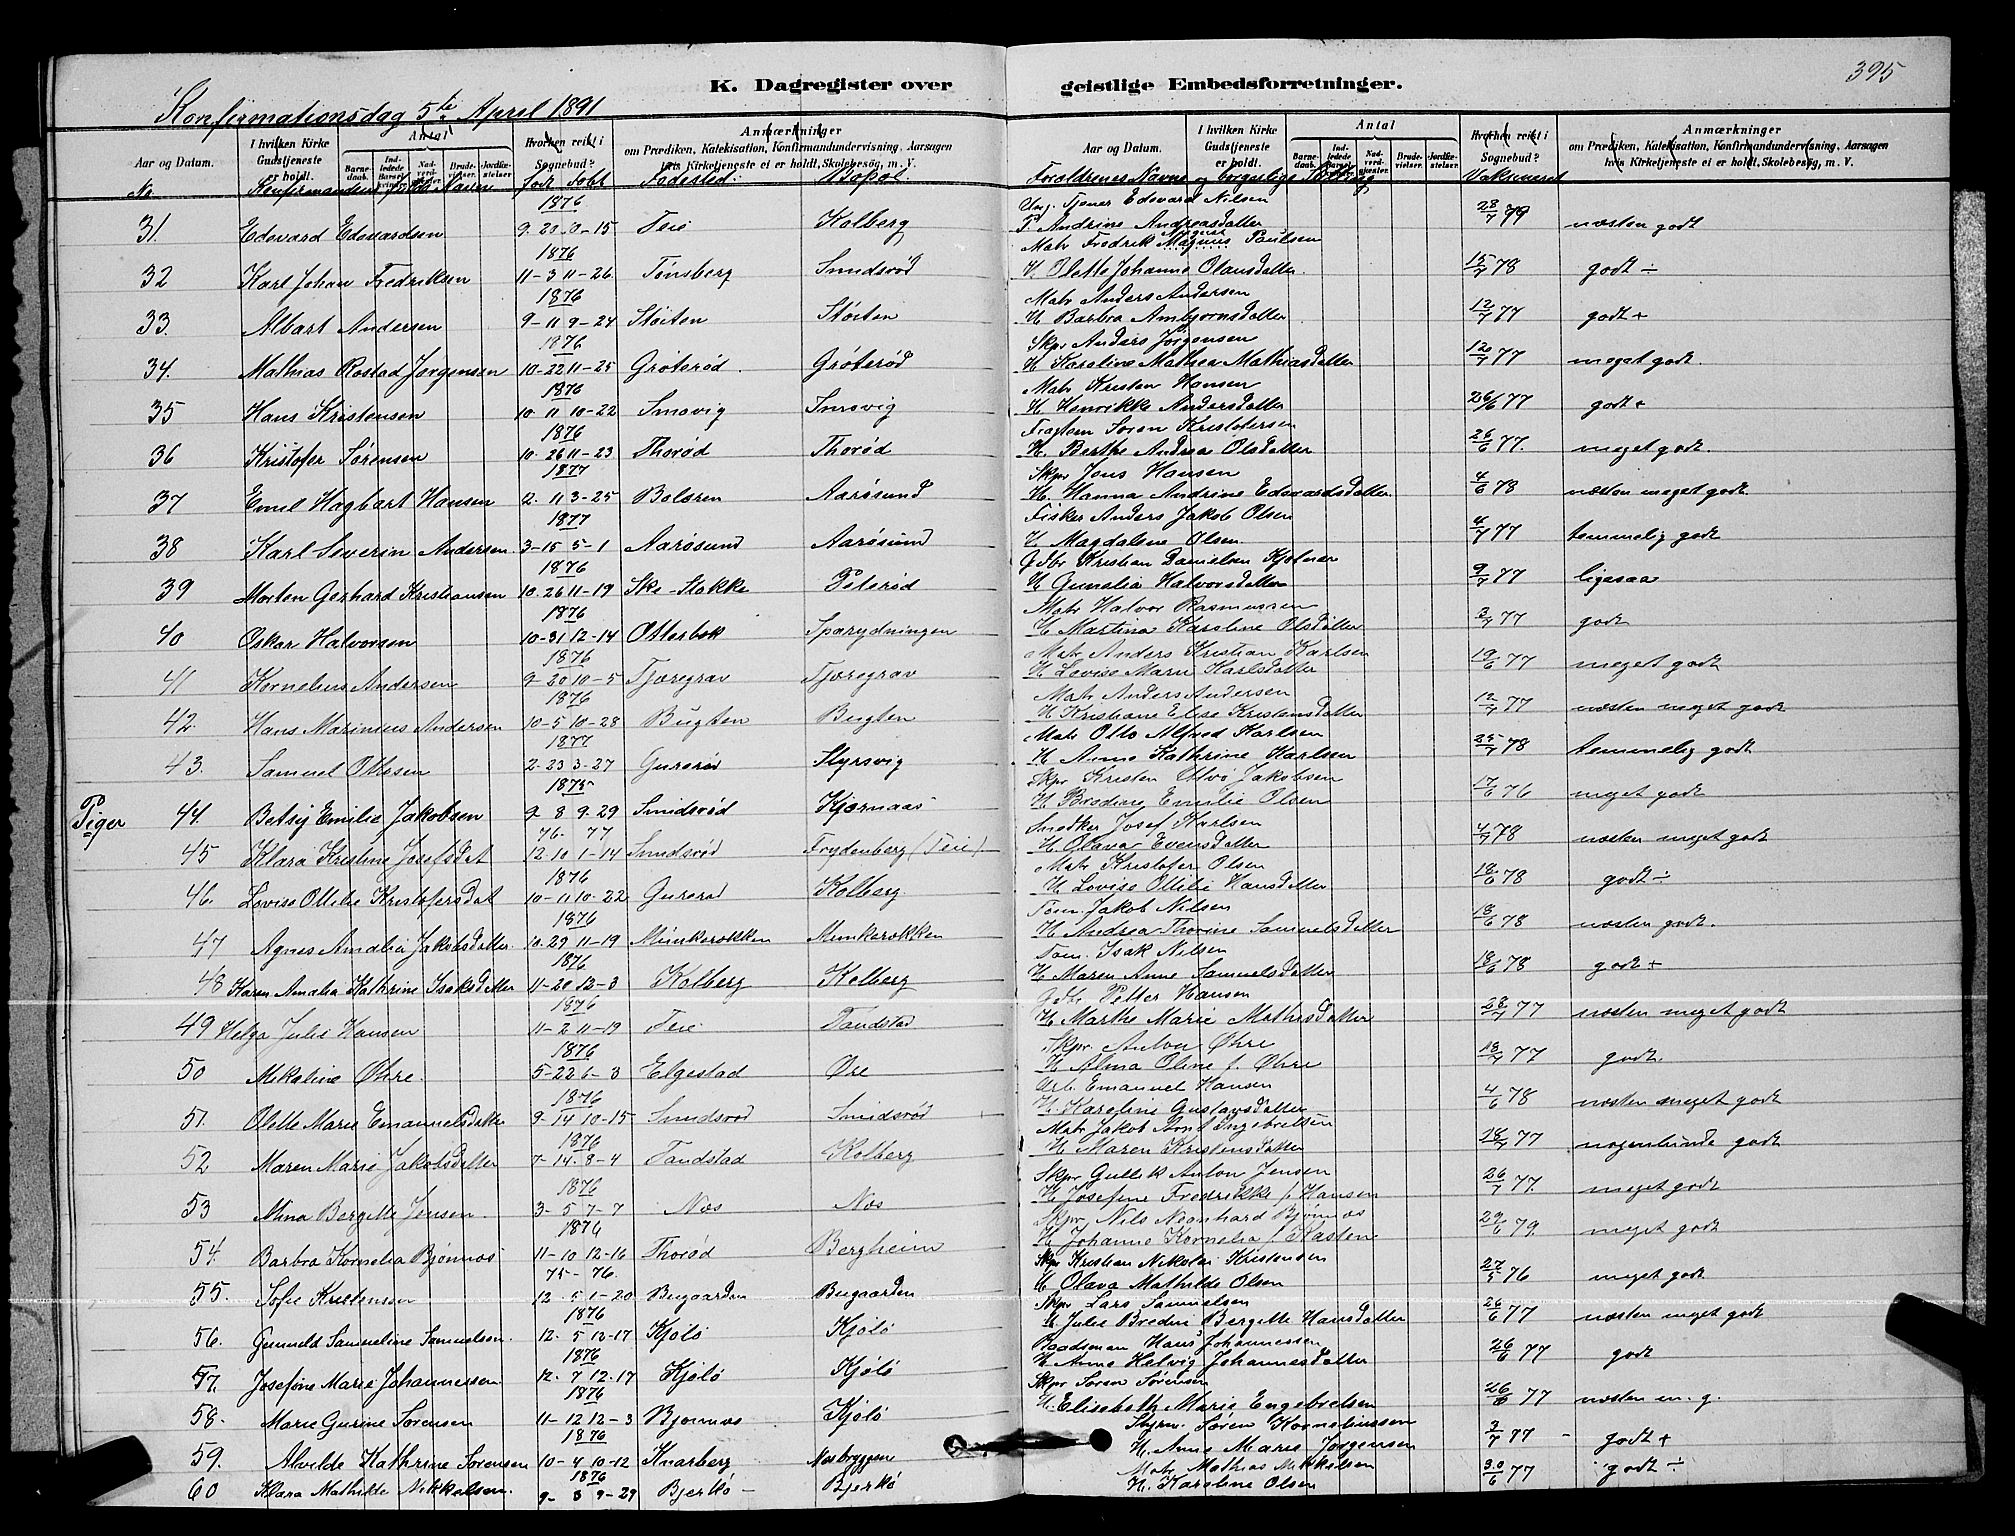 K. Dagregister over geistlige Embedsforretninger.
395
Konfirmationsdag 5te April 1891
Aar og Datum. I hvilken Kirke Gudstjeneste er holdt. Antal Barnedaab. Indledede Barselkvinder. Nadverdgjester. Brudevielser. Jordfæstelser Hvorhen reist i Sognebud? Anmærkninger om Prædiken, Katekisation, Konfirmandundervisning, Aarsagen hvis Kirketjeneste ei er holdt, Skolebesøg, m. V.
Aar og Datum. I hvilken Kirke Gudstjeneste er holdt. Antal Barnedaab. Indledede Barselkvinder. Nadverdgjester. Brudevielser. Jordfæstelser. Hvorhen reist i Sognebud? Anmærkninger om Prædiken, Katekisation, Konfirmandundervisning, Aarsagen hvis Kirketjeneste ei er holdt, Skolebesøg, m. V.
No Konfirmandens Navn født døbt Fødested. Bopæl. Forældrenes Navne og borgerlige Stilling Vakcineret
1876 Ung. Tjener Edevard Nilsen
31. Edevard Edevardsen 9-20 0-15 Teie Kolberg P. Andrine Andreasdatter 28/7 79 næsten godt
1876 Matr Fredrik Magnus Paulsen
32 Karl Johan Fredriksen 11-3 11-26 Tønsberg Smidsrød H. Olette Johanne Olausdatter 15/7 78 godt ÷
1876 Matr Anders Andersen
33. Albart Andersen 9-11 9-24 Støiten Støiten H Barbra Ambjørnsdatter 12/7 77 godt +
1876 Skpr Anders Jørgensen
34. Mathias Rostad Jørgensen 10-22 11-25 Grøterød Grøterød H Karoline Mathea Mathiasdatter 12/7 77 meget godt.
1876 Matr Kristen Hansen
35 Hans Kristensen 10 11 10-22 Smovig Smovig H Henrikke Andersdatter 26/6 77 godt +
1876 Fragtem Søren Kristofersen
36 Kristofer Sørensen 10-26 11-23 Thorød Thorød H. Berthe Andrea Olsdatter 26/6 77. meget godt.
1877 Skpr Jens Hansen
37 Emil Hagbart Hansen 12. 11 3-25 Bolæren Aarøsund H. Hanna Andrine Edevardsdatter 4/6 78 næsten meget godt
1877 Fisker Anders Jakob Olsen
38 Karl Severin Andersen 3-15 5-1 Aarøsund Aarøsund H Magdalene Olsen 4/7 77 temmelig godt
1876 Gdbr Kristian Danielsen Kjølner
39 Morten Gerhard Kristiansen 10-26 11-19 Ske-Stokke Peterød H Gunelia Halvorsdatter 9/7 77 ligesaa
1876 Matr Halvor Rasmussen
40 Oskar Halvorsen 10-31 12-14 Otterbek Sparrydningen H Martina Karoline Olsdatter 3/7 77 godt
1876 Matr Anders Kristian Karlsen
41 Kornelius Andersen 9-20 10-5 Tjæregrav Tjæregrav H Lovise Marie Karlsdatter 19/6 77 meget godt
1876 Matr Anders Andersen
42. Hans Marinius Andersen 10-5 10-28 Bugten Bugten H Kristiane Elise Kristensdatter 12/7 77 næsten meget godt
1877 Matr Otto Alfred Karlsen
43. Samuel Ottesen 2-23 3-27 Gurerød Styrsvig H Anna Kathrine Karlsen 25/7 78 temmelig godt
1875 Skpr Kristen Jakobsen
Piger 44. Betsy Emilie Jakobsen 9-8 9-29 Smidsrød Kjærnaas H Bredine Emilie Olsen 17/6 76 meget godt
76. 77 Snedker Josef Karlsen
45 Klara Kristine Josefsdat 12-10 1-14 Smidsrød Frydenberg (Teie) H Olava Evensdatter 4/7 78 næsten meget godt
1876 Matr Kristofer Olsen
46. Lovise Ottilie Kristofersdat 10-11 10-22 Gurerød Kolberg H Lovise Ottilie Hansdatter 18/6 78 godt ÷
1876 Tøm. Jakob Nilsen
47 Agnes Amalia Jakobsdatter 10-29 11-19 Munkerøkken Munkerøkken H Andrea Thorine Samuelsdatter 18/6 78 næsten godt.
1876 Tøm. Isak Nilsen
48 Karen Amalia Kathrine Isaksdatter 11-20 12-3 Kolberg Kolberg H Maren Anne Samuelsdatter 18/6 78 godt +
1876 Gdbr Petter Hansen
49 Helga Julie Hansen 11-2 11-19 Teie Tandstad H Marthe Marie Mathisdatter 28/7 77 næsten meget godt
1876 Skpr. Anton Øhre
50 Mikaline Øhre. 5-22 6-3 Elgestad Øre H Alma Oline f. Øhre 18/7 77 godt.
1876 Arb. Emanuel Hansen
51. Olette Marie Emanuelsdatter 9-14 10-15 Smidsrød Smidsrød H Karoline Gustavsdatter 4/6 78 næsten meget godt
1876 Matr Jakob Arnt Ingebretsen
52 Maren Marie Jakobsdatter 7-14. 8-4 Tandstad Kolberg H Maren Kristensdatter 18/7 77 nogenlunde godt
1876 Skpr Gullik Anton Jensen
53 Alma Bergitte Jensen 3-5 7-7 Næs Næs H Josefine Fredrikke f. Hansen 26/7 77. meget godt
1876 Skpr Nils Neonhard Bjønnæs
54. Barbra Kornelia Bjønnæs 11-10 12-16 Thorød Bergheim H Johanne Kornelia f. Kasten 29/6 79. meget godt
75-76. Skpr Kristian Nikolai Kristensen
55. Sofie Kristensen 12. 5 1-20 Bugaarden Bugaarden H Olava Mathilde Olsen 27/5 76 meget godt
1876 Skpr Lars Samuelsen
56. Gunnild Samueline Samuelsen. 12. 5 12-17 Kjølø Kjølø H Julie Bredine Bergitte Hansdatter 26/6 77 næsten meget godt
1876 Baadsman Hans Johannessen
57. Josefine Marie Johannessen 12. 7 12-17 Kjølø Kjølø H Anne Helvig Johannesdatter 26/6 77 godt
1876 Skpr Søren Sørensen
58. Marie Gurine Sørensen 11-12 12-3 Bjønnæs Kjølø H. Elisabeth Marie Engebretsen 26/6 77 næsten m. g.
1876 Styrm. Søren Korneliussen
59. Alvilde Kathrine Sørensen 10-4 10-12 Knarberg Næsbryggen H. Anne Marie Jørgensen 3/7 77 godt +
1876 Matr Mathias Mikkelsen
60 Klara Mathilde Mikkelsen. 9-8 9-29 Bjerkø Bjerkø H. Karoline Olsen 30/6 77 godt ÷